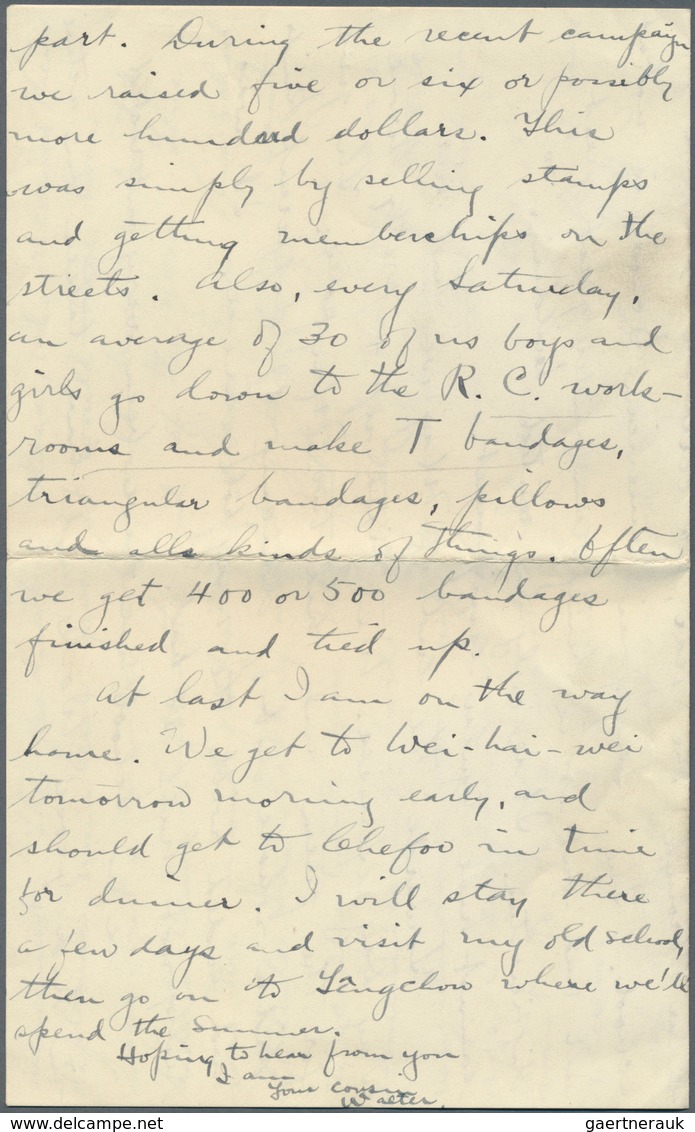 part. During the recent campaign
we raised five or six or possibly
more hundred dollars. This
was simply by selling stamps
and getting memberships on the
streets. Also, every Saturday,
an average of 30 of us boys and
girls go down to the R. C. work-
rooms and make T bandages,
triangular bandages, pillows
and alls kinds of things. Often
we get 400 or 500 bandages
finished and tied up.
At last I am on the way
home. We get to Wei-hai-wei
tomorrow morning early, and
should get to Chefoo in time
for dinner. I will stay there
a few days and visit my old school,
then go on to Têngchow where we'll
spend the summer.
Hoping to hear from you
I am
Your cousin
Walter.
gaertnerauk